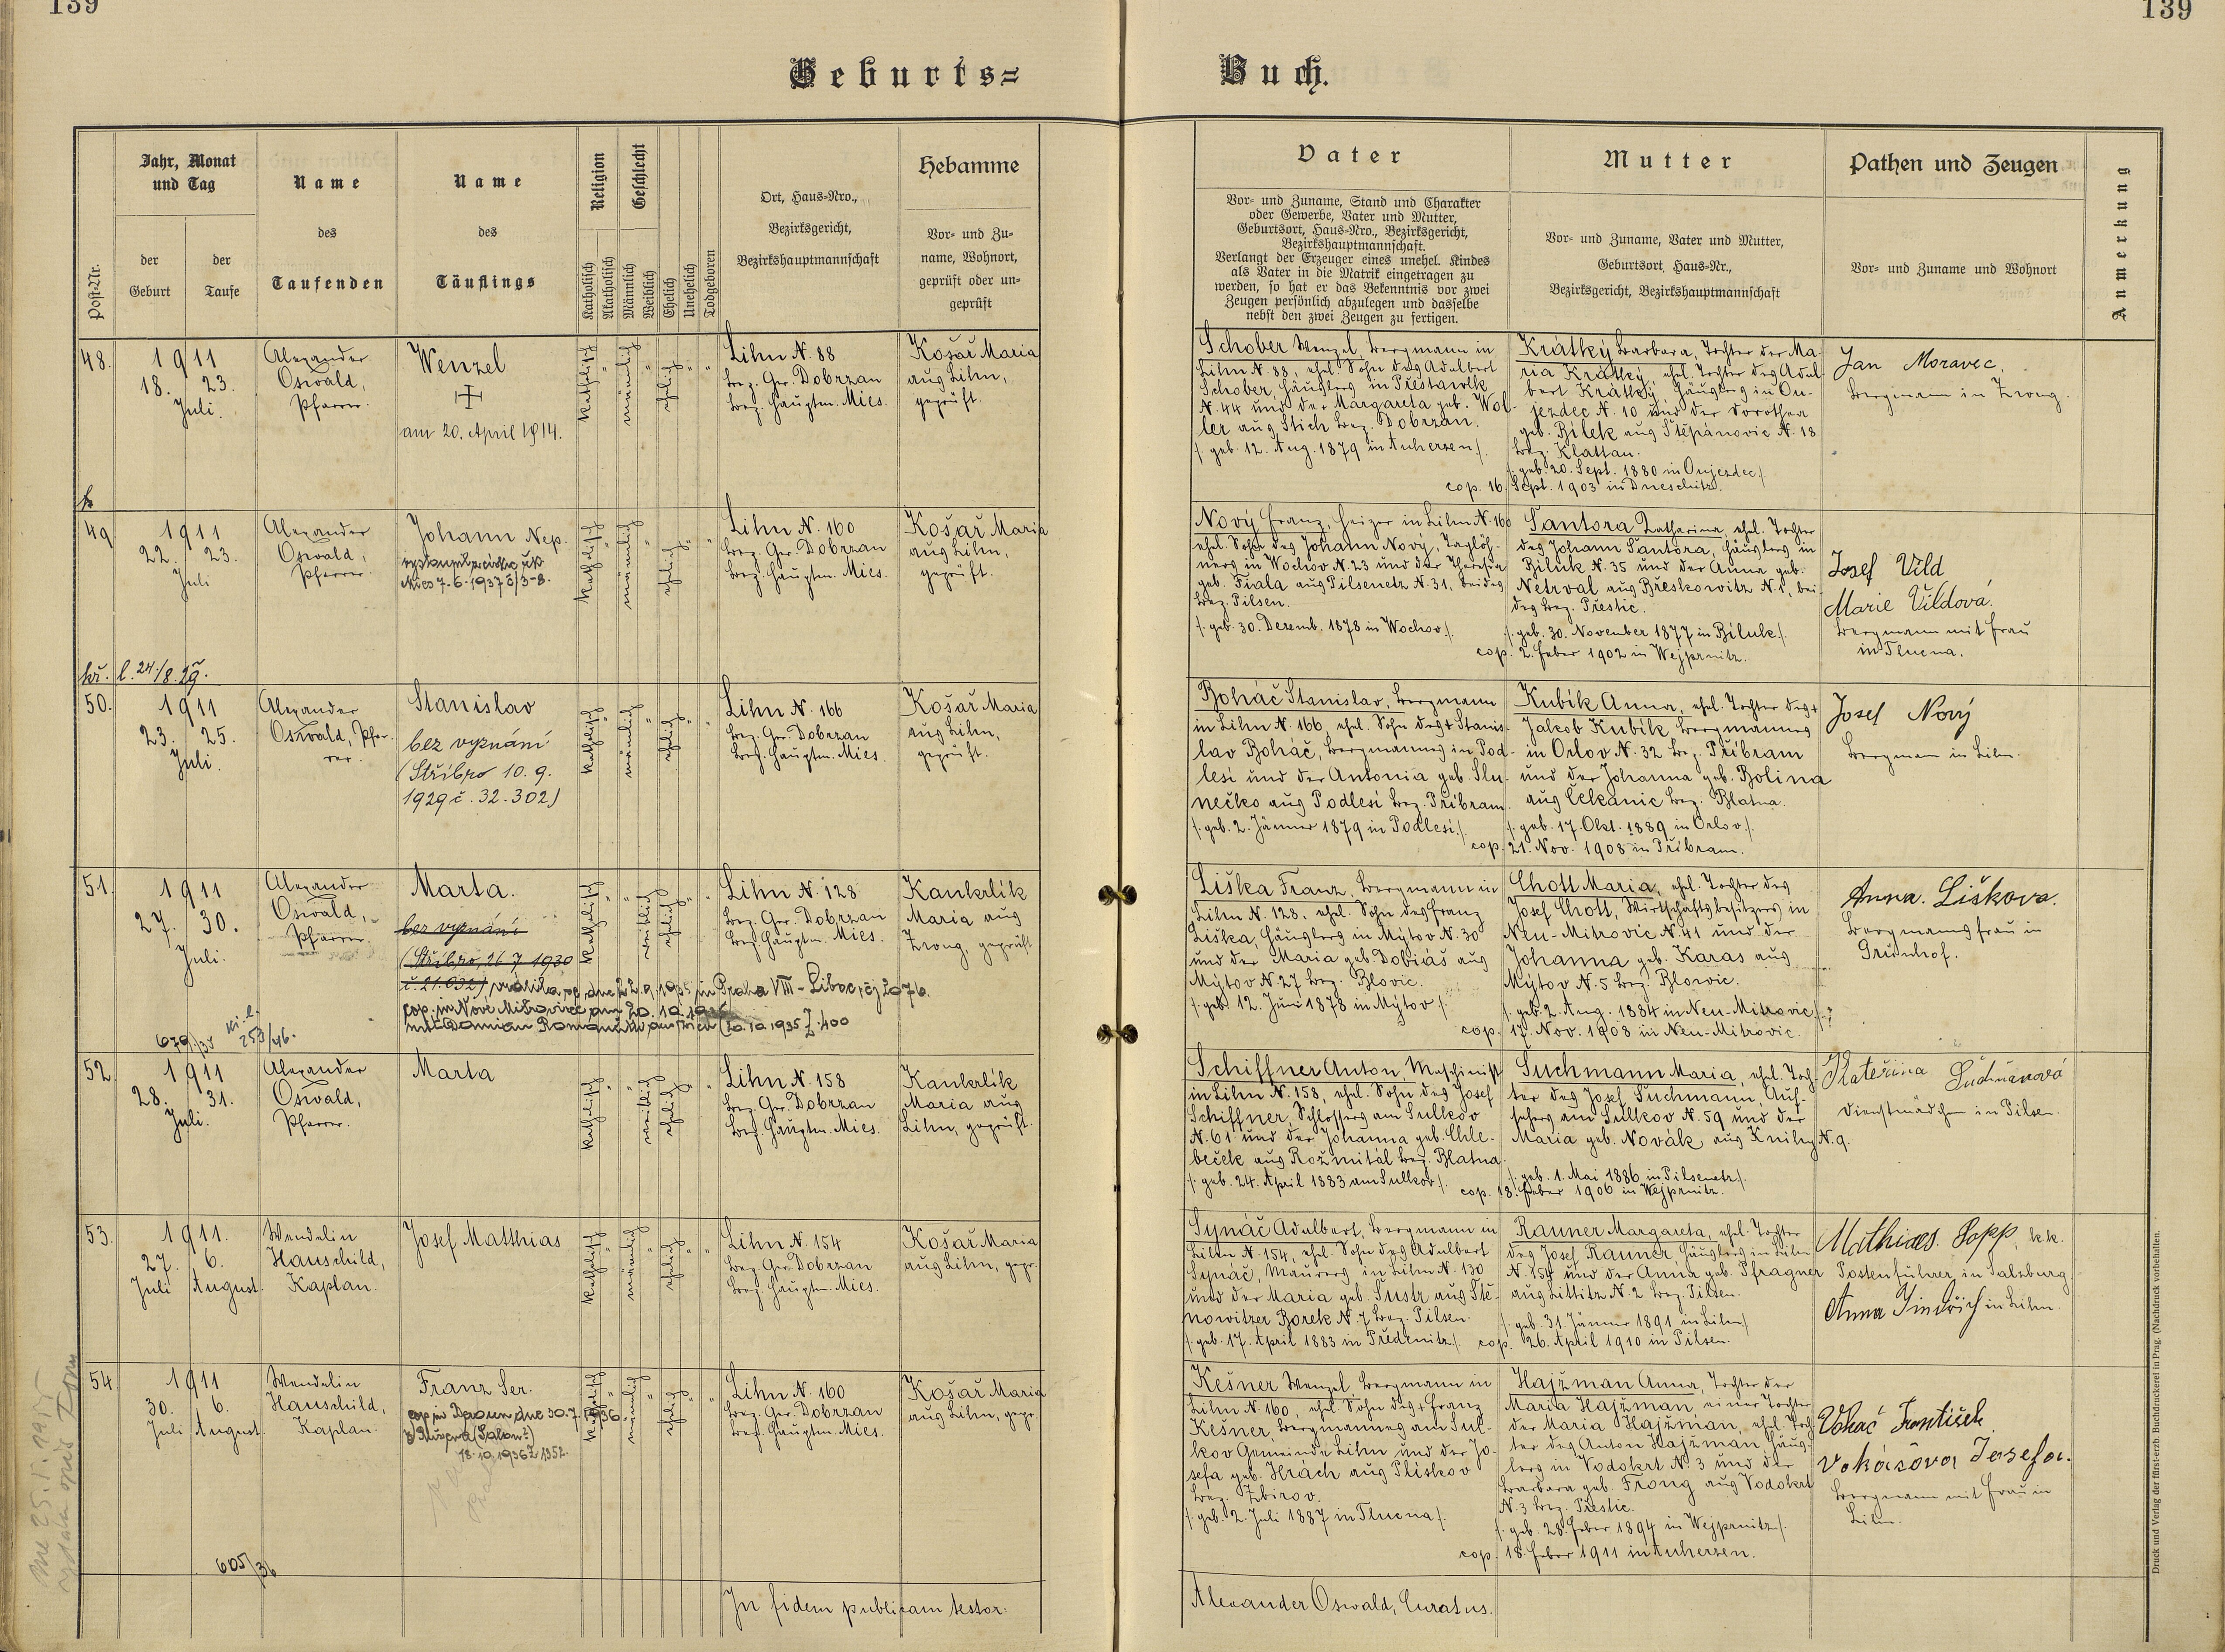 139
139
Geburts=
Buch.
Post-Nr.
Jahr, Monat
und Tag
der
Geburt
der
Taufe
Name
des
Taufenden
Name
des
Täuflings
Religion
Katholisch
Akatholisch
Geschlecht
Männlich
Weiblich
Ehelich
Unehelich
Todgeboren
Ort, Haus-Nro.,
Bezirksgericht,
Bezirkshauptmannschaft
Hebamme
Vor- und Zu-
name, Wohnort,
geprüft oder un-
geprüft
Vater
Vor- und Zuname, Stand und Charakter
oder Gewerbe, Vater und Mutter,
Geburtsort, Haus-Nro., Bezirksgericht,
Bezirkshauptmannschaft.
Verlangt der Erzeuger eines unehel. Kindes
als Vater in die Matrik eingetragen zu
werden, so hat er das Bekenntnis vor zwei
Zeugen persönlich abzulegen und dasselbe
nebst den zwei Zeugen zu fertigen.
Mutter
Vor- und Zuname, Vater und Mutter,
Geburtsort, Haus-Nr.,
Bezirksgericht, Bezirkshauptmannschaft
Pathen und Zeugen
Vor- und Zuname und Wohnort
Anmerkung
48.
1911
18. 23.
Juli.
Alexander
Oswald,
Pfarrer.
Wenzel
am 20. April 1914.
katholisch
"
männlich
"
ehelich
"
"
Lihn N. 88
Bez. Ger. Dobrzan
Bez. Hauptm. Mies.
Košař Maria
aus Lihn,
geprüft.
Schober Wenzel, Bergmann in
Lihn N. 88, ehel. Sohn des Adalbert
Schober, Häuslers in Přestawlk
N. 44 und der Margareta geb. Wol-
ler aus Stich Bez. Dobrzan.
/: geb. 12. Aug. 1879 in Auherzen :/
Krátký Barbara, Tochter der Ma-
ria Krátký, ehel. Tochter des Adal-
bert Krátký, Häuslers in Ou-
jezdec N. 10 und der Dorothea
geb. Bílek aus Štěpánovic N. 18
Bez. Klattau.
/: geb. 20. Sept. 1880 in Oujezdec :/
cop. 16. Sept. 1903 in Dneschitz.
Jan Moravec,
Bergmann in Zwug.
49
1911
22. 23.
Juli
Alexander
Oswald,
Pfarrer.
Johann Nep.
Mies 7.6.1937
katholisch
"
männlich
"
ehelich
"
"
Lihn N. 160
Bez. Ger. Dobrzan
Bez. Hauptm. Mies.
Košař Maria
aus Lihn,
geprüft.
Nový Franz, Heizer in Lihn N. 160
ehel. Sohn des Johann Nový, Taglöh-
ners in Wochov N. 23 und der Theresia
geb. Fiala aus Pilsenetz N. 31, beides
Bez. Pilsen.
/: geb. 30. Dezemb. 1878 in Wochov :/
Šantora Katharina, ehel. Tochter
des Johann Šantora, Häuslers in
Biluk N. 35 und der Anna geb.
Netrval aus Břeskowitz N. 1, bei-
des Bez. Přestic.
/: geb. 30. November 1877 in Biluk :/
cop. 2. Feber 1902 in Wejprnitz.
Josef Vild
Marie Vildová.
Bergmann mit Frau
in Tlucna.
kř. l. 24/8.29.
50.
1911
23. 25.
Juli.
Alexander
Oswald, Pfar-
rer.
Stanislav
bez vyznání
(Stříbro 10. 9.
1929 č. 32.302)
katholisch
"
männlich
"
ehelich
"
"
Lihn N. 166
Bez. Ger. Dobrzan
Bez. Hauptm. Mies.
Košař Maria
aus Lihn,
geprüft.
Boháč Stanislav, Bergmann
in Lihn N. 166, ehel. Sohn des + Stanis-
lav Boháč, Bergmanns in Pod-
lesí und der Antonia geb. Slu-
nečko aus Podlesí Bez. Příbram.
/: geb. 2. Jänner 1879 in Podlesí :/
Kubík Anna, ehel. Tochter des +
Jakob Kubík Bergmannes
in Orlov N. 32 Bez. Příbram
und der Johanna geb. Bolina
aus Čekanic Bez. Blatna.
/: geb. 17. Okt. 1889 in Orlov :/
cop. 21. Nov. 1908 in Příbram.
Josef Nový
Bergmann in Lihn.
51.
1911
27. 30.
Juli.
Alexander
Oswald,
Pfarrer.
Marta.
bez vyznání
(Stříbro, 26.7.1930
č. 21.032) vrátila se dne 22.9.1935 in Praha VIII - Liboc, čj 2076.
cop. in Nové Mitrovice am 20. 10. 1935
(20.10.1935 Z. 400
679/35
253/46.
katholisch
"
"
weiblich
ehelich
"
"
Lihn N. 128
Bez. Ger. Dobrzan
Bez. Hauptm. Mies.
Kankrlík
Maria aus
Zwug, geprüft
Liška Franz, Bergmann in
Lihn N. 128, ehel. Sohn des Franz
Liška, Häuslers in Mýtov N. 30
und der Maria geb. Dobiáš aus
Mýtov N. 27 Bez. Blovic.
/: geb. 12. Juni 1878 in Mýtov :/
Chott Maria, ehel. Tochter des
Josef Chott, Wirtschaftsbesitzers in
Neu-Mitrovic N. 41 und der
Johanna geb. Karas aus
Mýtov N. 5 Bez. Blowic.
/: geb. 2. Aug. 1884 in Neu-Mitrovic :/
cop. 17. Nov. 1908 in Neu-Mitrovic.
Anna Liškova.
Bergmannsfrau in
Grünhof.
52
1911
28. 31.
Juli.
Alexander
Oswald,
Pfarrer.
Marta
katholisch
"
"
weiblich
ehelich
"
"
Lihn N. 158
Bez. Ger. Dobrzan
Bez. Hauptm. Mies.
Kankrlík
Maria aus
Lihn, geprüft.
Schiffner Anton, Maschinist
in Lihn N. 158, ehel. Sohn des Josef
Schiffner, Schlossers am Sulkov
N. 61 und der Johanna geb. Chle-
beček aus Rožmitál Bez. Blatna.
/: geb. 24. April 1883 am Sulkov :/
Suchmann Maria, ehel. Toch-
ter des Josef Suchmann, Auf-
sehers am Sulkov N. 59 und der
Maria geb. Novák aus Knihy N. 9.
/: geb. 1. Mai 1886 in Pilsenetz :/
cop. 18. Feber 1906 in Wejprnitz.
Kateřina Suchmanová
Dienstmädchen in Pilsen.
53.
1911.
27. 6.
Juli August.
Wendelin
Hauschild,
Kaplan.
Josef Matthias
katholisch
"
männlich
"
ehelich
"
"
Lihn N. 154
Bez. Ger. Dobrzan
Bez. Hauptm. Mies.
Košař Maria
aus Lihn, gepr.
Synáč Adalbert, Bergmann in
Lihn N. 154, ehel. Sohn des Adalbert
Synáč, Maurers in Lihn N. 130
und der Maria geb. Šustr aus Ště-
nowitzer Borek N. 7 Bez. Pilsen.
/: geb. 17. April 1883 in Předenitz :/
Rauner Margareta, ehel. Tochter
des Josef Rauner Häuslers in Lihn
N. 154 und der Anna geb. Pfragner
aus Littitz N. 2 Bez. Pilsen.
/: geb. 31. Jänner 1891 in Lihn :/
cop. 26. April 1910 in Pilsen.
Mathias Sopp, k.k.
Postenführer in Salzburg.
Anna Jindřich in Lihn.
54
1911
30. 6.
Juli August.
Wendelin
Hauschild,
Kaplan.
Franz Ser.
cop. in dne 30.7.1936.
18.10.1936 Z 1352.
605/36
katholisch
"
männlich
"
ehelich
"
"
Lihn N. 160
Bez. Ger. Dobrzan
Bez. Hauptm. Mies.
Košař Maria
aus Lihn, gepr.
Kešner Wenzel, Bergmann in
Lihn N. 160, ehel. Sohn des + Franz
Kešner, Bergmannes am Sul-
kov Gemeinde Lihn und der Jo-
sefa geb. Hrách aus Plískov
Bez. Zbirov.
/: geb. 2. Juli 1887 in Tlucna :/
Hajžman Anna, Tochter der
Maria Hajžman, einer Tochter
der Maria Hajžman, ehel. Toch-
ter des Anton Hajžman, Häus-
lers in Vodokrt N. 3 und der
Barbara geb. Frong aus Vodokrt
N. 3 Bez. Přestic.
/: geb. 28. Feber 1894 in Wejprnitz :/
cop. 18. Feber 1911 in Auherzen.
Vokáč František
Vokáčova Josefa.
Bergmann mit Frau in
Lihn.
In fidem publicam testor:
Alexander Oswald, Curatus.
Druck und Verlag der fürst-erzb. Buchdruckerei in Prag. (Nachdruck vorbehalten.